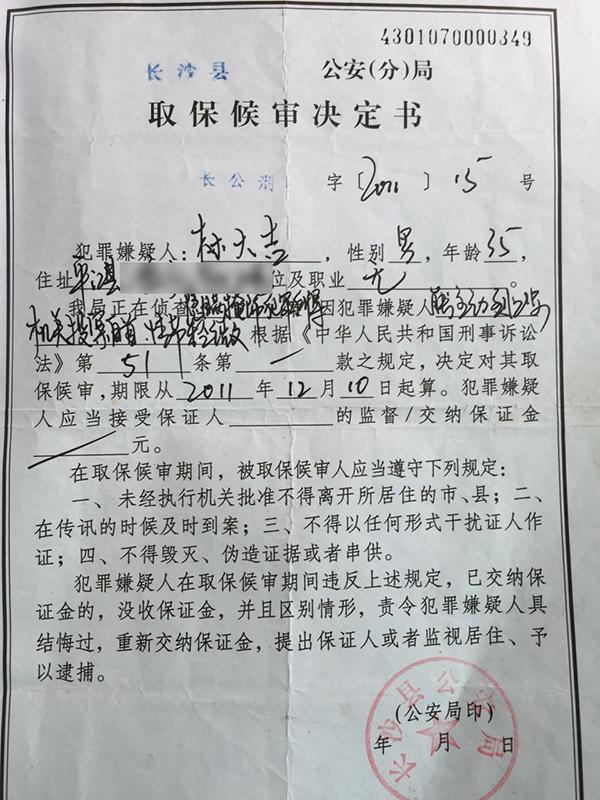 4301070000349
长沙县 公安(分)局
取保候审决定书
长公刑 字〔2011〕15号
犯罪嫌疑人:林大吉,性别男,年龄35,
住址 县 位及职业无。
我局正在侦查 因犯罪嫌疑人 主动到公安
机关投案 根据《中华人民共和国刑事诉讼
法》第51条第一款之规定,决定对其取
保候审,期限从2011年12月10日起算。犯罪嫌疑
人应当接受保证人 的监督/交纳保证金
元。
在取保候审期间,被取保候审人应当遵守下列规定:
一、未经执行机关批准不得离开所居住的市、县;二、
在传讯的时候及时到案;三、不得以任何形式干扰证人作
证;四、不得毁灭、伪造证据或者串供。
犯罪嫌疑人在取保候审期间违反上述规定,已交纳保
证金的,没收保证金,并且区别情形,责令犯罪嫌疑人具
结悔过,重新交纳保证金,提出保证人或者监视居住、予
以逮捕。
长沙县公安局
(公安局印)
年 月 日